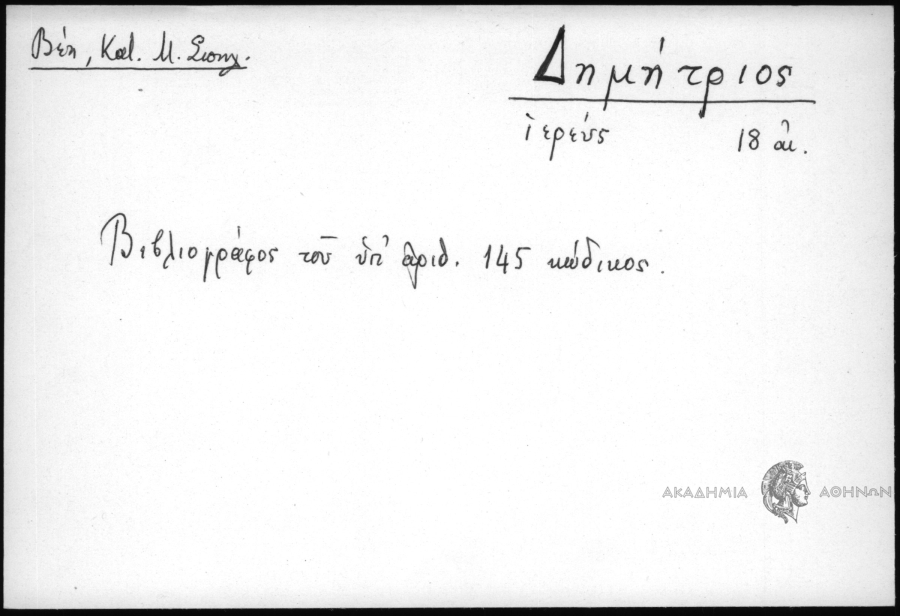 Βέη, Κατ. Μ.
Δημήτριος
ἱερεύς 18 αἰ.
Βιβλιογράφος τοῦ ὑπ' ἀριθ. 145 κώδικος.
ΑΚΑΔΗΜΙΑ ΑΘΗΝΩΝ